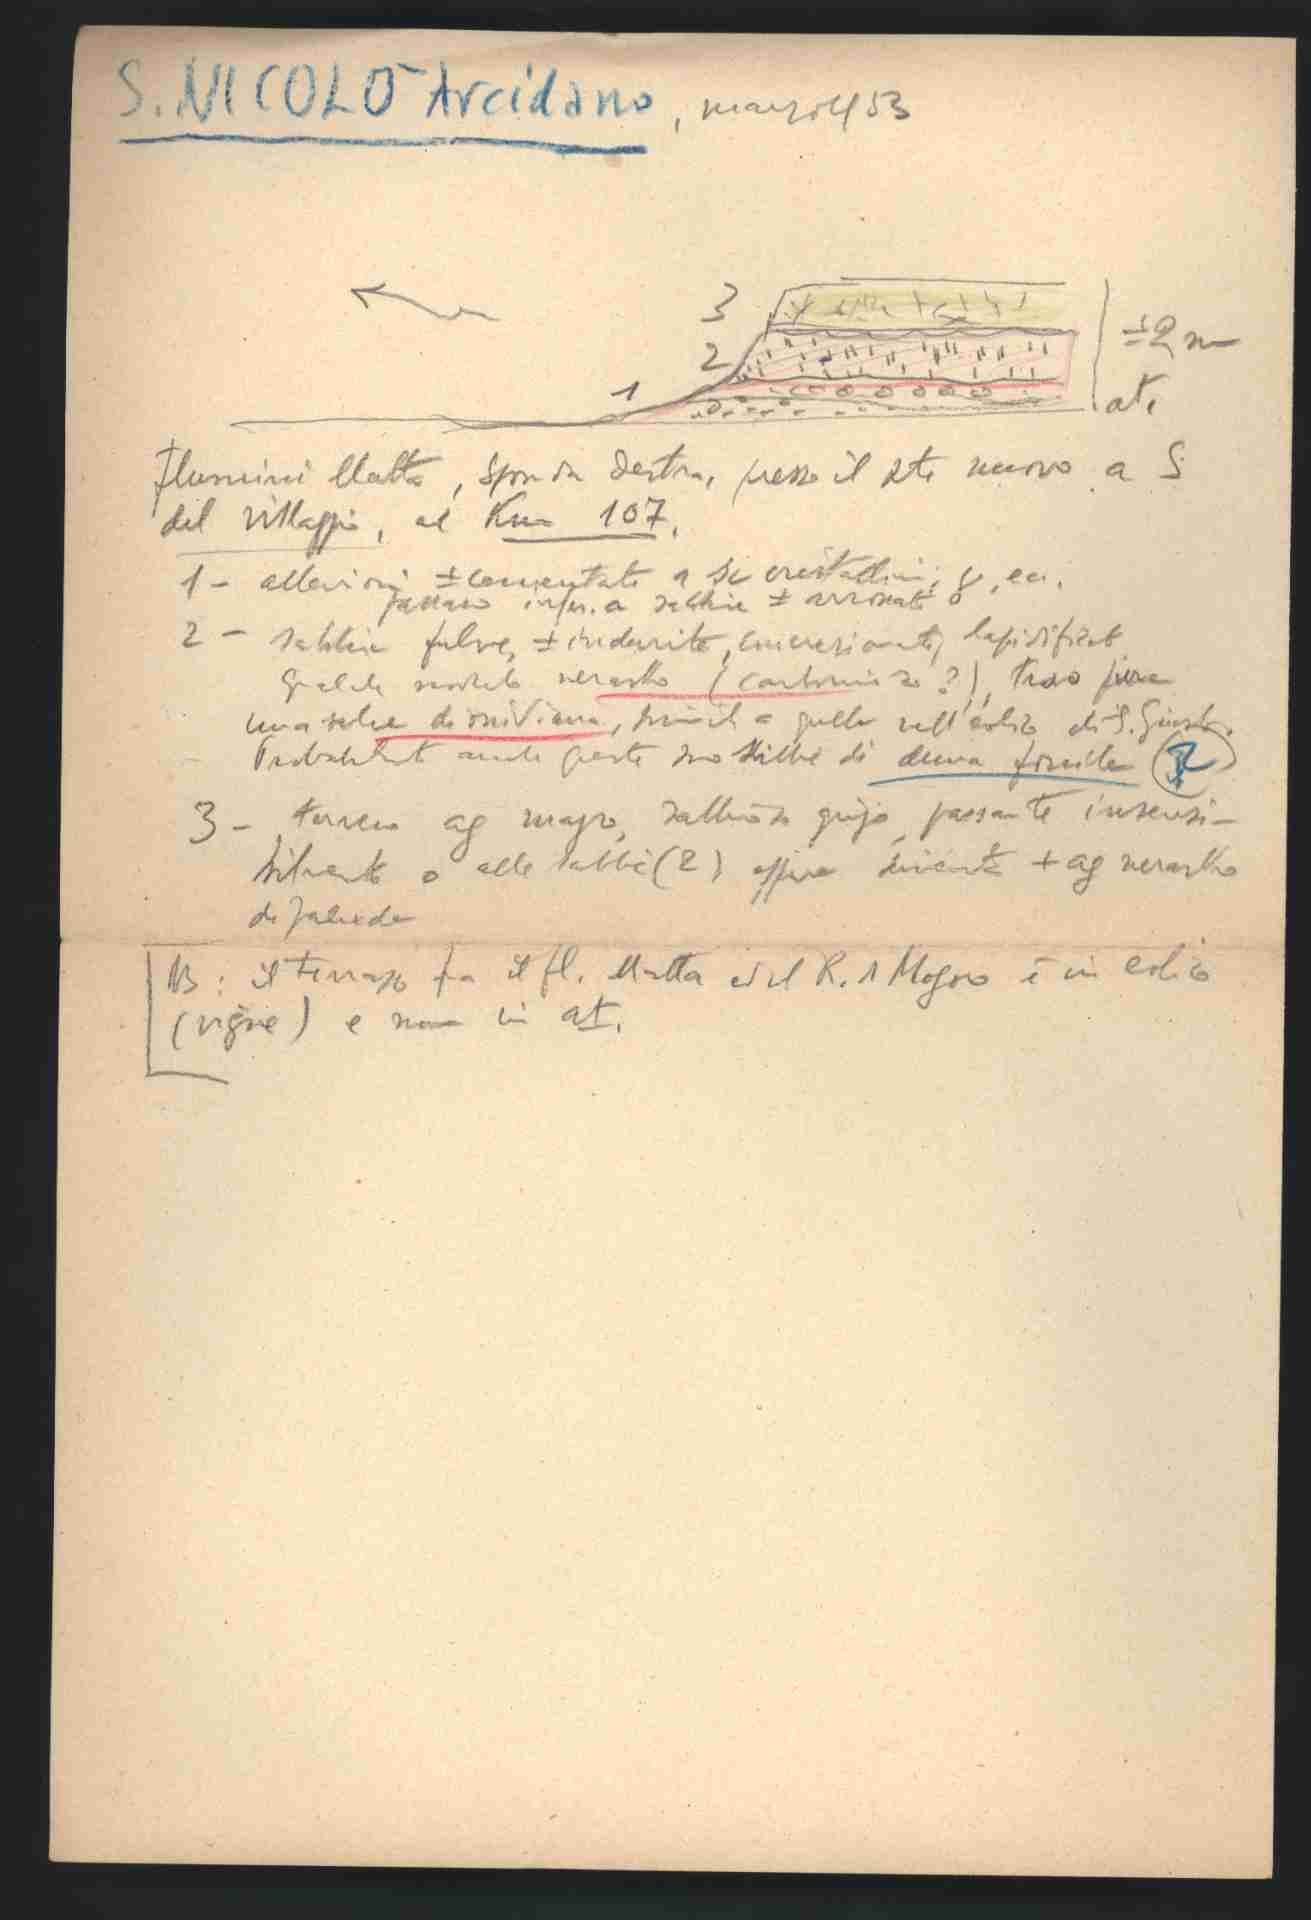 S. NICOLÒ Arcidano, marzo 1953
3
2
1
±2 m
at.
Flumini Matta, sponda destra, presso il pte nuovo a S
del villaggio, al Km 107.
1 - alluvioni ±cementate a sc cristallini, q, ecc.
passano infer. a sabbie ± arrossate
2 - sabbie fulve, ± indurite, concrezionate, lapidificate
Qualche nerastro (carbonioso?), trovo pure
una selce di ossidiana, simile a quelle nell'eolico di S. Giusta.
Probabilmente anche queste sono sabbie di duna fossile
3 - terreno ag magro, sabbioso grigio, passante insensi-
bilmente o alle sabbie (2) oppure diventa + ag nerastro
di palude
NB: il terrazzo fra il fl. Matta ed il R. Mogoro è in eolico
(vigne) e non in at.